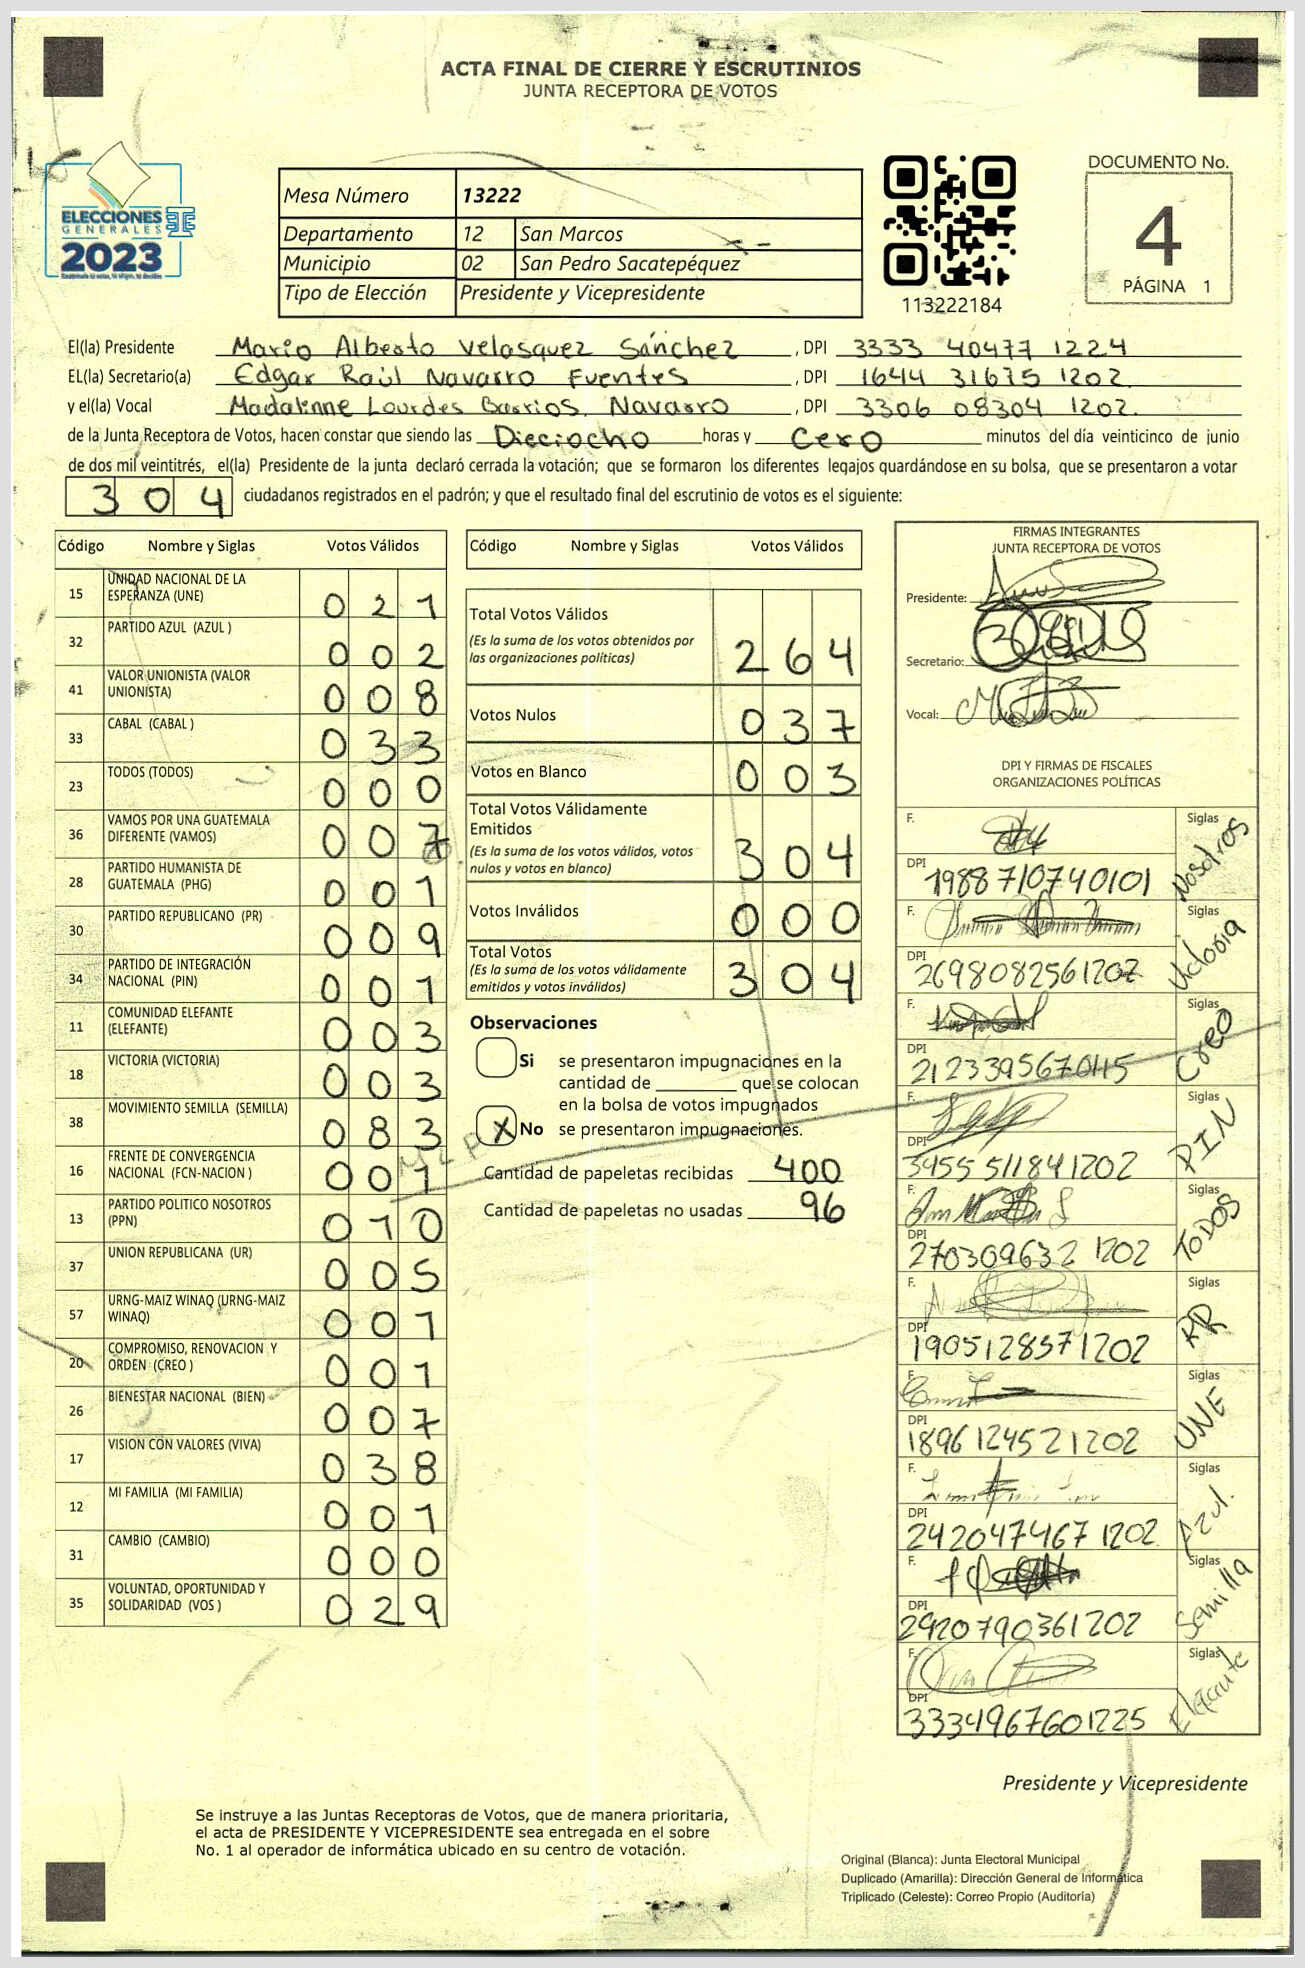 ACTA FINAL DE CIERRE Y ESCRUTINIOS
JUNTA RECEPTORA DE VOTOS
ELECCIONES
GENERALES
2023
Mesa Número 13222
Departamento 12 San Marcos
Municipio 02 San Pedro Sacatepéquez
Tipo de Elección Presidente y Vicepresidente
113222184
DOCUMENTO No.
4
PÁGINA 1
El(la) Presidente Mario Alberto Velasquez Sánchez, DPI 3333 40477 1224
EL(la) Secretario(a) Edgar Raúl Navarro Fuentes, DPI 1644 31675 1202
y el(la) Vocal Madalinne Lourdes Barrios Navarro, DPI 3306 08304 1202.
de la Junta Receptora de Votos, hacen constar que siendo las Dieciocho horas y Cero minutos del día veinticinco de junio
de dos mil veintitrés, el(la) Presidente de la junta declaró cerrada la votación; que se formaron los diferentes legajos quardándose en su bolsa, que se presentaron a votar
304 ciudadanos registrados en el padrón; y que el resultado final del escrutinio de votos es el siguiente:
Código Nombre y Siglas Votos Válidos
15 UNIDAD NACIONAL DE LA ESPERANZA (UNE) 021
32 PARTIDO AZUL (AZUL ) 002
41 VALOR UNIONISTA (VALOR UNIONISTA) 008
33 CABAL (CABAL ) 033
23 TODOS (TODOS) 000
36 VAMOS POR UNA GUATEMALA DIFERENTE (VAMOS) 007
28 PARTIDO HUMANISTA DE GUATEMALA (PHG) 001
30 PARTIDO REPUBLICANO (PR) 009
34 PARTIDO DE INTEGRACIÓN NACIONAL (PIN) 001
11 COMUNIDAD ELEFANTE (ELEFANTE) 003
18 VICTORIA (VICTORIA) 003
38 MOVIMIENTO SEMILLA (SEMILLA) 083
16 FRENTE DE CONVERGENCIA NACIONAL (FCN-NACION ) 001
13 PARTIDO POLITICO NOSOTROS (PPN) 010
37 UNION REPUBLICANA (UR) 005
57 URNG-MAIZ WINAQ (URNG-MAIZ WINAQ) 001
20 COMPROMISO, RENOVACION Y ORDEN (CREO ) 001
26 BIENESTAR NACIONAL (BIEN) 007
17 VISION CON VALORES (VIVA) 038
12 MI FAMILIA (MI FAMILIA) 001
31 CAMBIO (CAMBIO) 000
35 VOLUNTAD, OPORTUNIDAD Y SOLIDARIDAD (VOS ) 029
Código Nombre y Siglas Votos Válidos
Total Votos Válidos 264
(Es la suma de los votos obtenidos por
las organizaciones políticas)
Votos Nulos 037
Votos en Blanco 003
Total Votos Válidamente
Emitidos 304
(Es la suma de los votos válidos, votos
nulos y votos en blanco)
Votos Inválidos 000
Total Votos 304
(Es la suma de los votos válidamente
emitidos y votos inválidos)
Observaciones
Si se presentaron impugnaciones en la
cantidad de ________ que se colocan
en la bolsa de votos impugnados
X No se presentaron impugnaciones.
Cantidad de papeletas recibidas 400
Cantidad de papeletas no usadas 96
FIRMAS INTEGRANTES
JUNTA RECEPTORA DE VOTOS
Presidente:
Secretario:
Vocal:
DPI Y FIRMAS DE FISCALES
ORGANIZACIONES POLÍTICAS
F. Siglas Nosotros
DPI 1988710740101
F. Siglas Victoria
DPI 2698082561202
F. Siglas Creo
DPI 2123395670115
F. Siglas PIN
DPI 3455511841202
F. Siglas TODOS
DPI 270309632 1202
F. Siglas PR
DPI 1905128571202
F. Siglas UNE
DPI 1896124521202
F. Siglas Azul.
DPI 242047467 1202
F. Siglas Semilla
DPI 2920790361202
F. Siglas Elefante
DPI 3334967601225
Presidente y Vicepresidente
Se instruye a las Juntas Receptoras de Votos, que de manera prioritaria,
el acta de PRESIDENTE Y VICEPRESIDENTE sea entregada en el sobre
No. 1 al operador de informática ubicado en su centro de votación.
Original (Blanca): Junta Electoral Municipal
Duplicado (Amarilla): Dirección General de Informática
Triplicado (Celeste): Correo Propio (Auditoría)